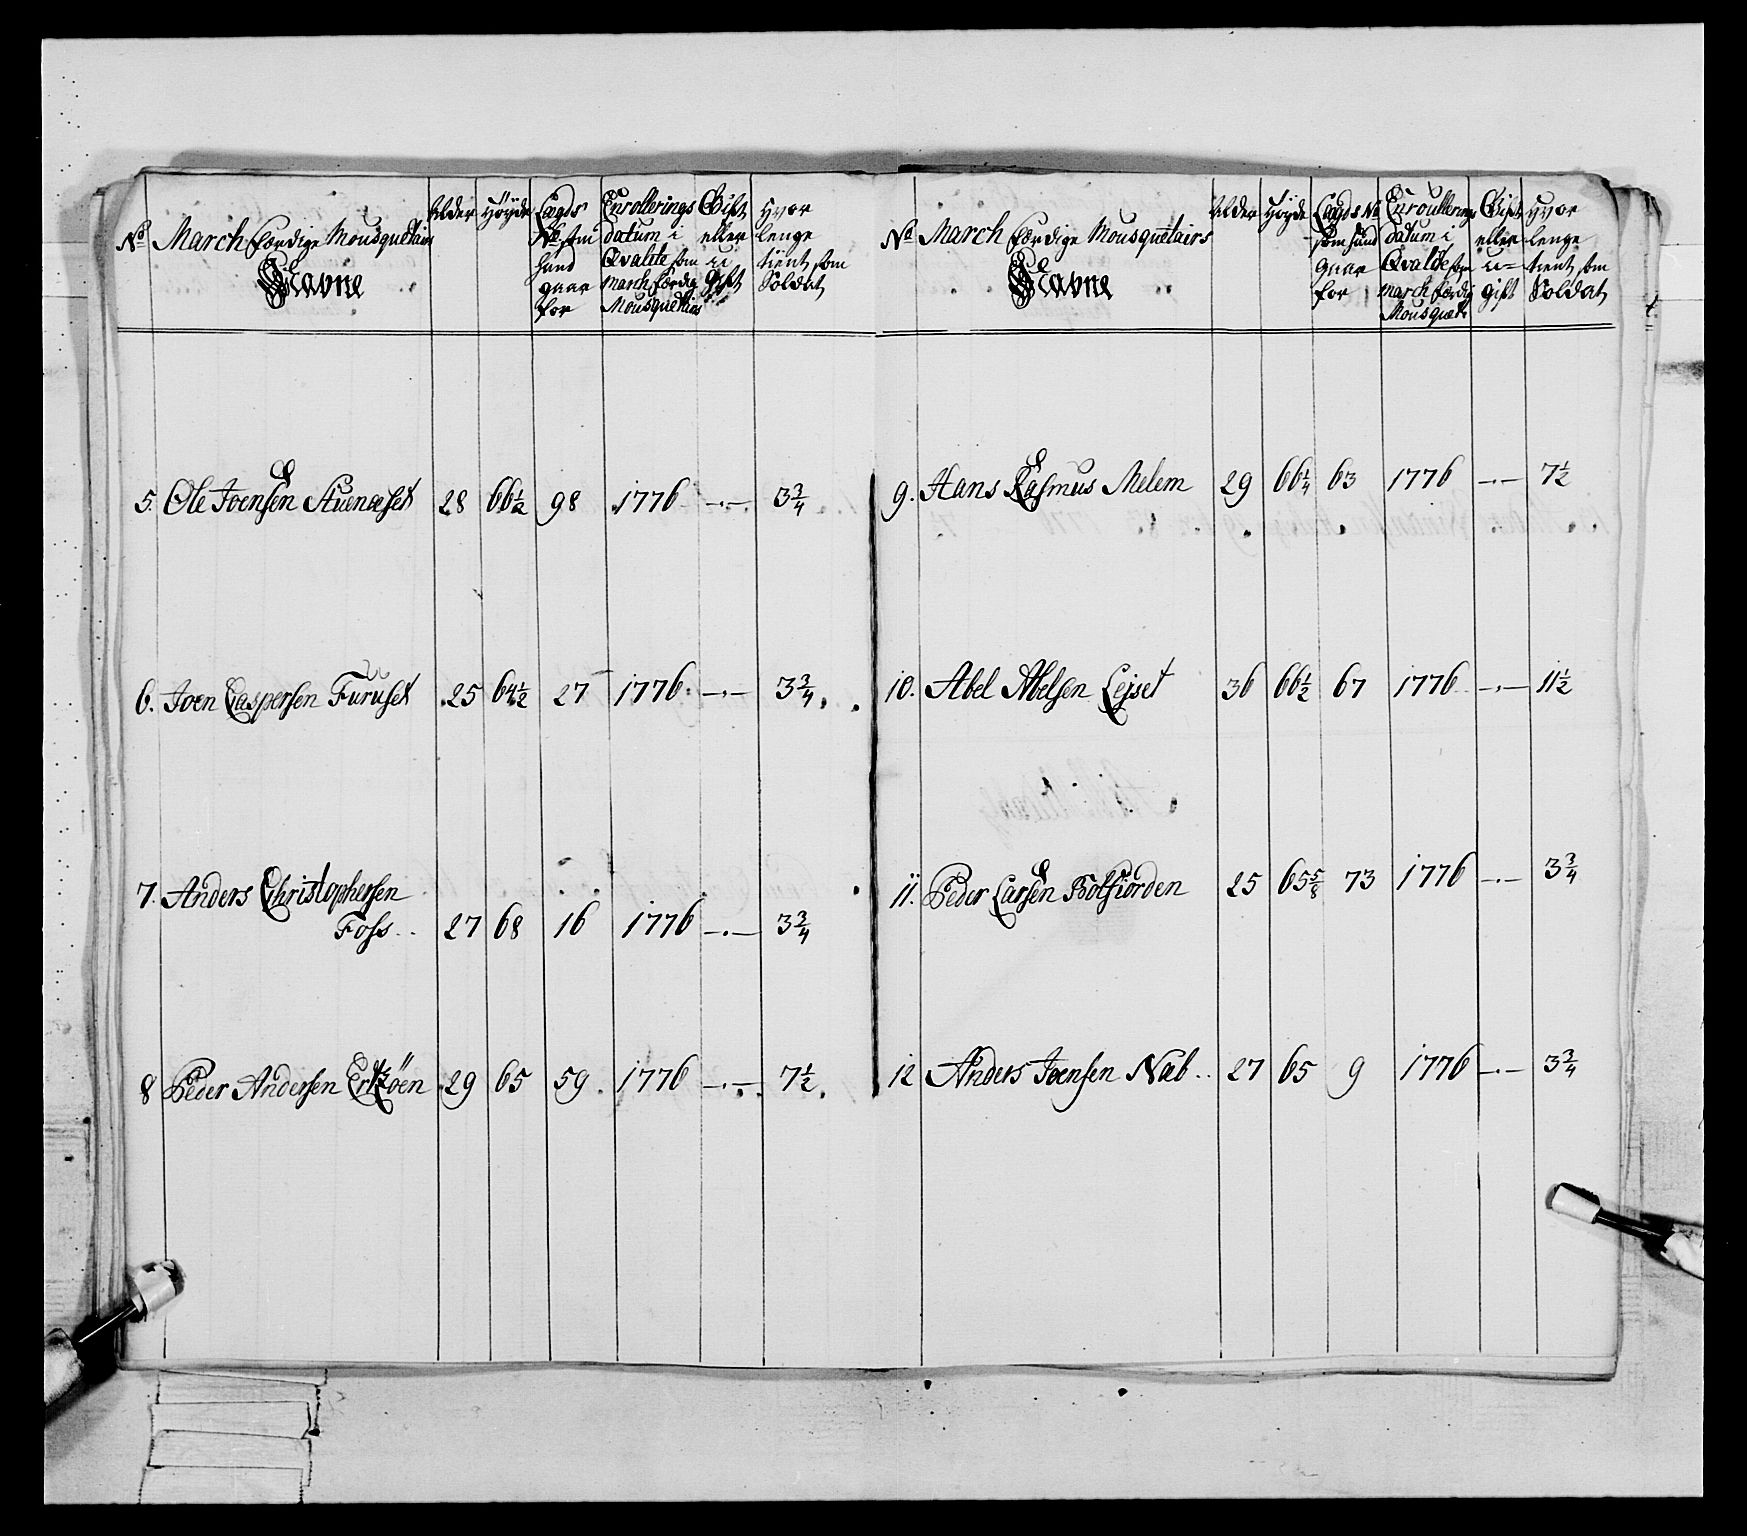 No March færdige Mousquetairs Navne | Alder | Höyde | Lægds No som hand gaar for | Enrollerings datum i Qvalite som march færdig Mousquetairs | Gift eller u gift | Hvor lenge tient som Soldat
5. Ole Joensen Stuenæset 28 66½ 98 1776 -.- 3¾
6. Joen Caspersen Furuset 25 64½ 27 1776 -.- 3¾
7. Anders Christophersen
Foss 27 68 16 1776 -.- 3¾
8 Peder Andersen Erköen 29 65 59 1776 -.- 7½
No March færdige Mousquetairs Navne | Alder | Höyde | Lægds No som hand gaar for | Enroullerings datum i Qvalite som march færdig Mousquet: | Gift eller u= gift | Hvor lenge tient som Soldat
9. Hans Rasmus Melem 29 66¼ 63 1776 -.- 7½
10. Abel Abelsen Lejset 36 66½ 67 1776 -.- 11½
11. Peder Larsen Botfiorden 25 65⅝ 73 1776 -.- 3¾
12 Anders Joensen Nab.. 27 65 9 1776 -.- 3¾